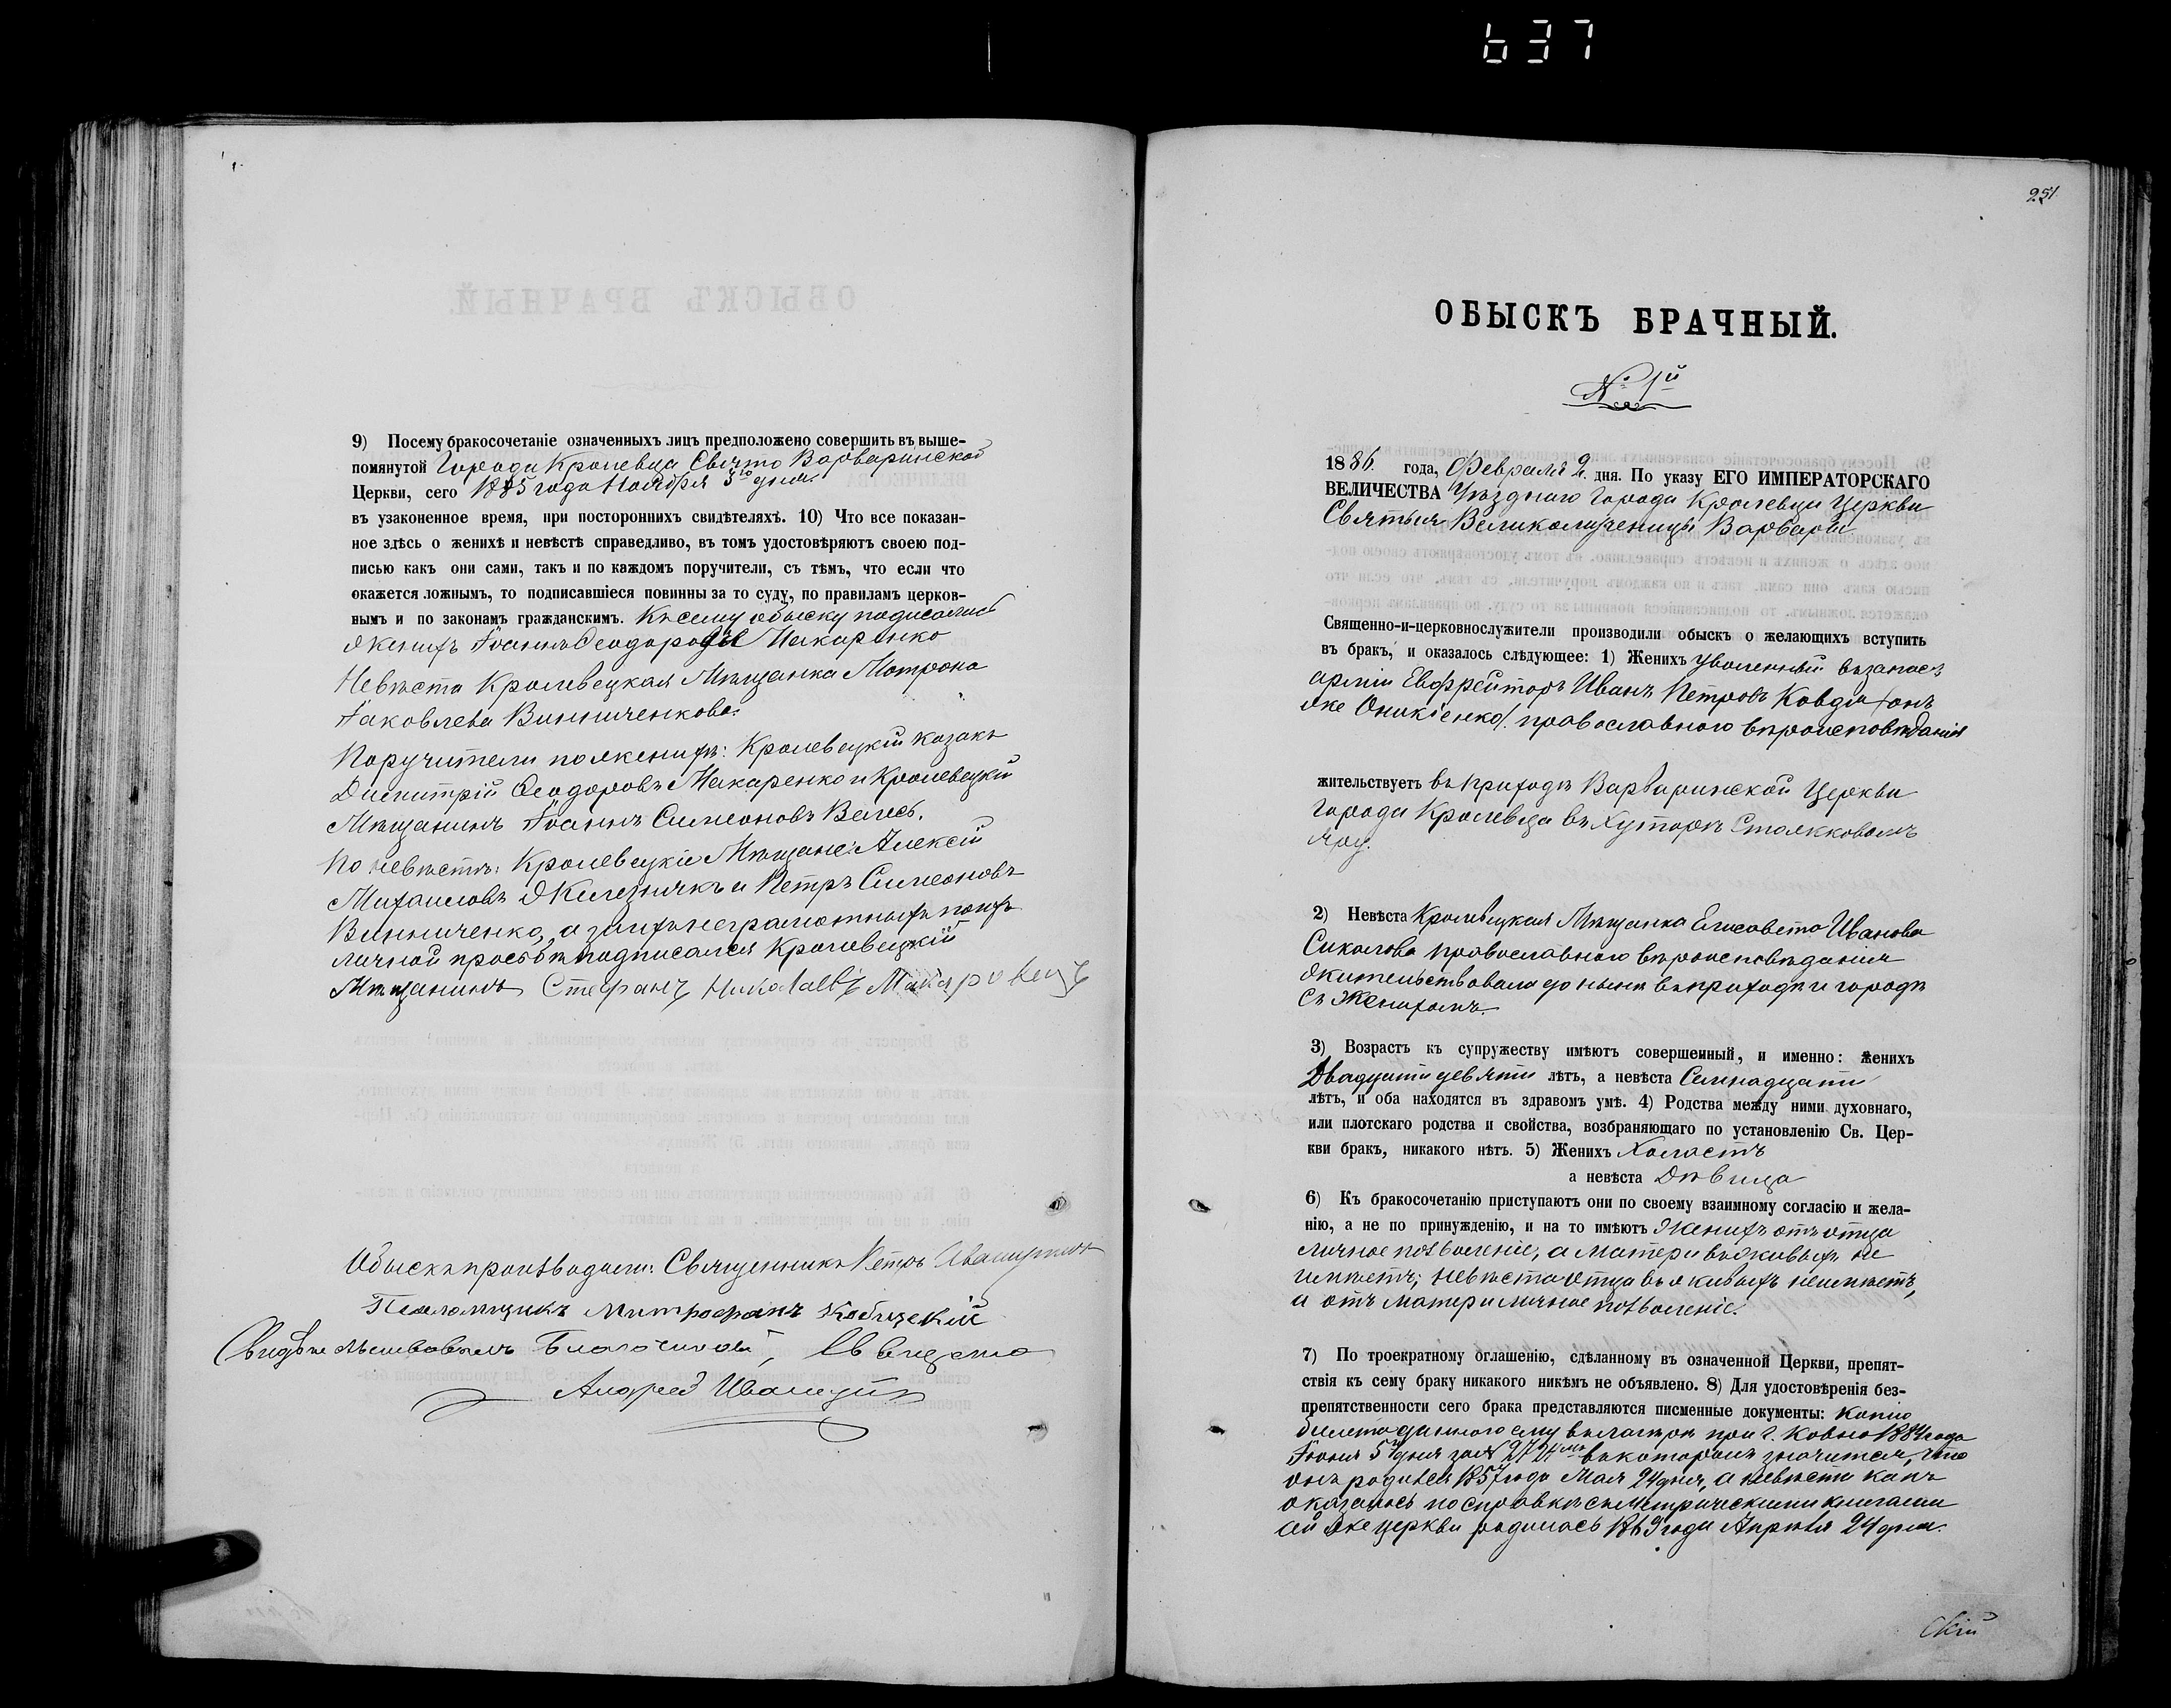 637
9) Посему бракосочетаніе означенныхъ лицъ предположено совершить въ выше-
помянутой Города Кролевца Свято Варваринской
Церкви, сего 1885 года Ноября 3го дня
въ узаконенное время, при постороннихъ свидѣтеляхъ. 10) Что все показан-
ное здѣсь о женихѣ и невѣстѣ справедливо, въ томъ удостовѣряютъ своею под-
писью какъ они сами, такъ и по каждомъ поручители, съ тѣмъ, что если что
окажется ложнымъ, то подписавшіеся повинны за то суду, по правиламъ церков-
нымъ и по законамъ гражданскимъ. Къ сему обыску подписались
Женихъ Іоаннъ Ѳеодоровъ Макаренко
Невѣста Кролевецкая Мѣщанка Матрона
Іаковлева Винниченкова.
Поручители по женихѣ: Кролевецкій козакъ
Димитрій Ѳеодоровъ Макаренко и Кролевецкій
Мѣщанинъ Іоаннъ Симеоновъ Велесь.
По невѣстѣ: Кролевецкіе Мѣщане: Алексій
Михаиловъ Железнякъ и Петръ Симеоновъ
Винниченко, а за ихъ неграмотныхъ по ихъ
личной просьбѣ подписался Кролевецкій
Мѣщанинъ Стефанъ Николаевъ Макаровецъ
Обыскъ производили: Священникъ Петръ
Псаломщикъ Митрофанъ Кобизскій
Свидѣтельствовалъ Благочинный, Священно
Андрей
251
ОБЫСКЪ БРАЧНЫЙ.
№ 1й
1886. года, Февраля 2. дня. По указу ЕГО ИМПЕРАТОРСКАГО
ВЕЛИЧЕСТВА Уѣзднаго Города Кролевца Церкви
Святыя Великомученицы Варвары
Священно-и-церковнослужители производили обыскъ о желающихъ вступить
въ бракъ, и оказалось слѣдующее: 1) Женихъ Уволенный въ запасъ
арміи Ефрейторъ Иванъ Петровъ Ковдя /онъ
же Оникіенко/. православнаго вѣроисповѣданія
жительствуетъ въ приходѣ Варваринской Церкви
города Кролевца въ Хуторѣ
Яру.
2) Невѣста Кролевецкая Мѣщанка Елисавета Иванова
Сиколова православнаго вѣроисповѣданія
жительствовала до нынѣ въ приходѣ и городѣ
съ Женихомъ.
3) Возрастъ къ супружеству имѣютъ совершенный, и именно: женихъ
Двадцати девяти лѣтъ, а невѣста Семнадцати
лѣтъ, и оба находятся въ здравомъ умѣ. 4) Родства между ними духовнаго,
или плотскаго родства и свойства, возбраняющаго по установленію Св. Цер-
кви бракъ, никакого нѣтъ. 5) Женихъ Холостъ
а невѣста Дѣвица
6) Къ бракосочетанію приступаютъ они по своему взаимному согласію и жела-
нію, а не по принужденію, и на то имѣютъ Женихъ отъ отца
личное позволеніе, а матери въ живыхъ не
имѣетъ; невѣста отца въ живыхъ неимѣетъ,
а отъ матери личное позволеніе.
7) По троекратному оглашенію, сдѣланному въ означенной Церкви, препят-
ствія къ сему браку никакого никѣмъ не объявлено. 8) Для удостовѣренія без-
препятственности сего брака представляются писменные документы: Копію
билета даннаго ему въ лагерѣ при г. Ковно 1884 года
Іюня 5 дня за № въ которомъ значится, что
онъ родился 1857 года Мая 24 дня, а невѣста какъ
оказалось по справкѣ съ Метрическими книгами
сей же церкви родилась 1869 года Апрѣля 24 дня.
скій